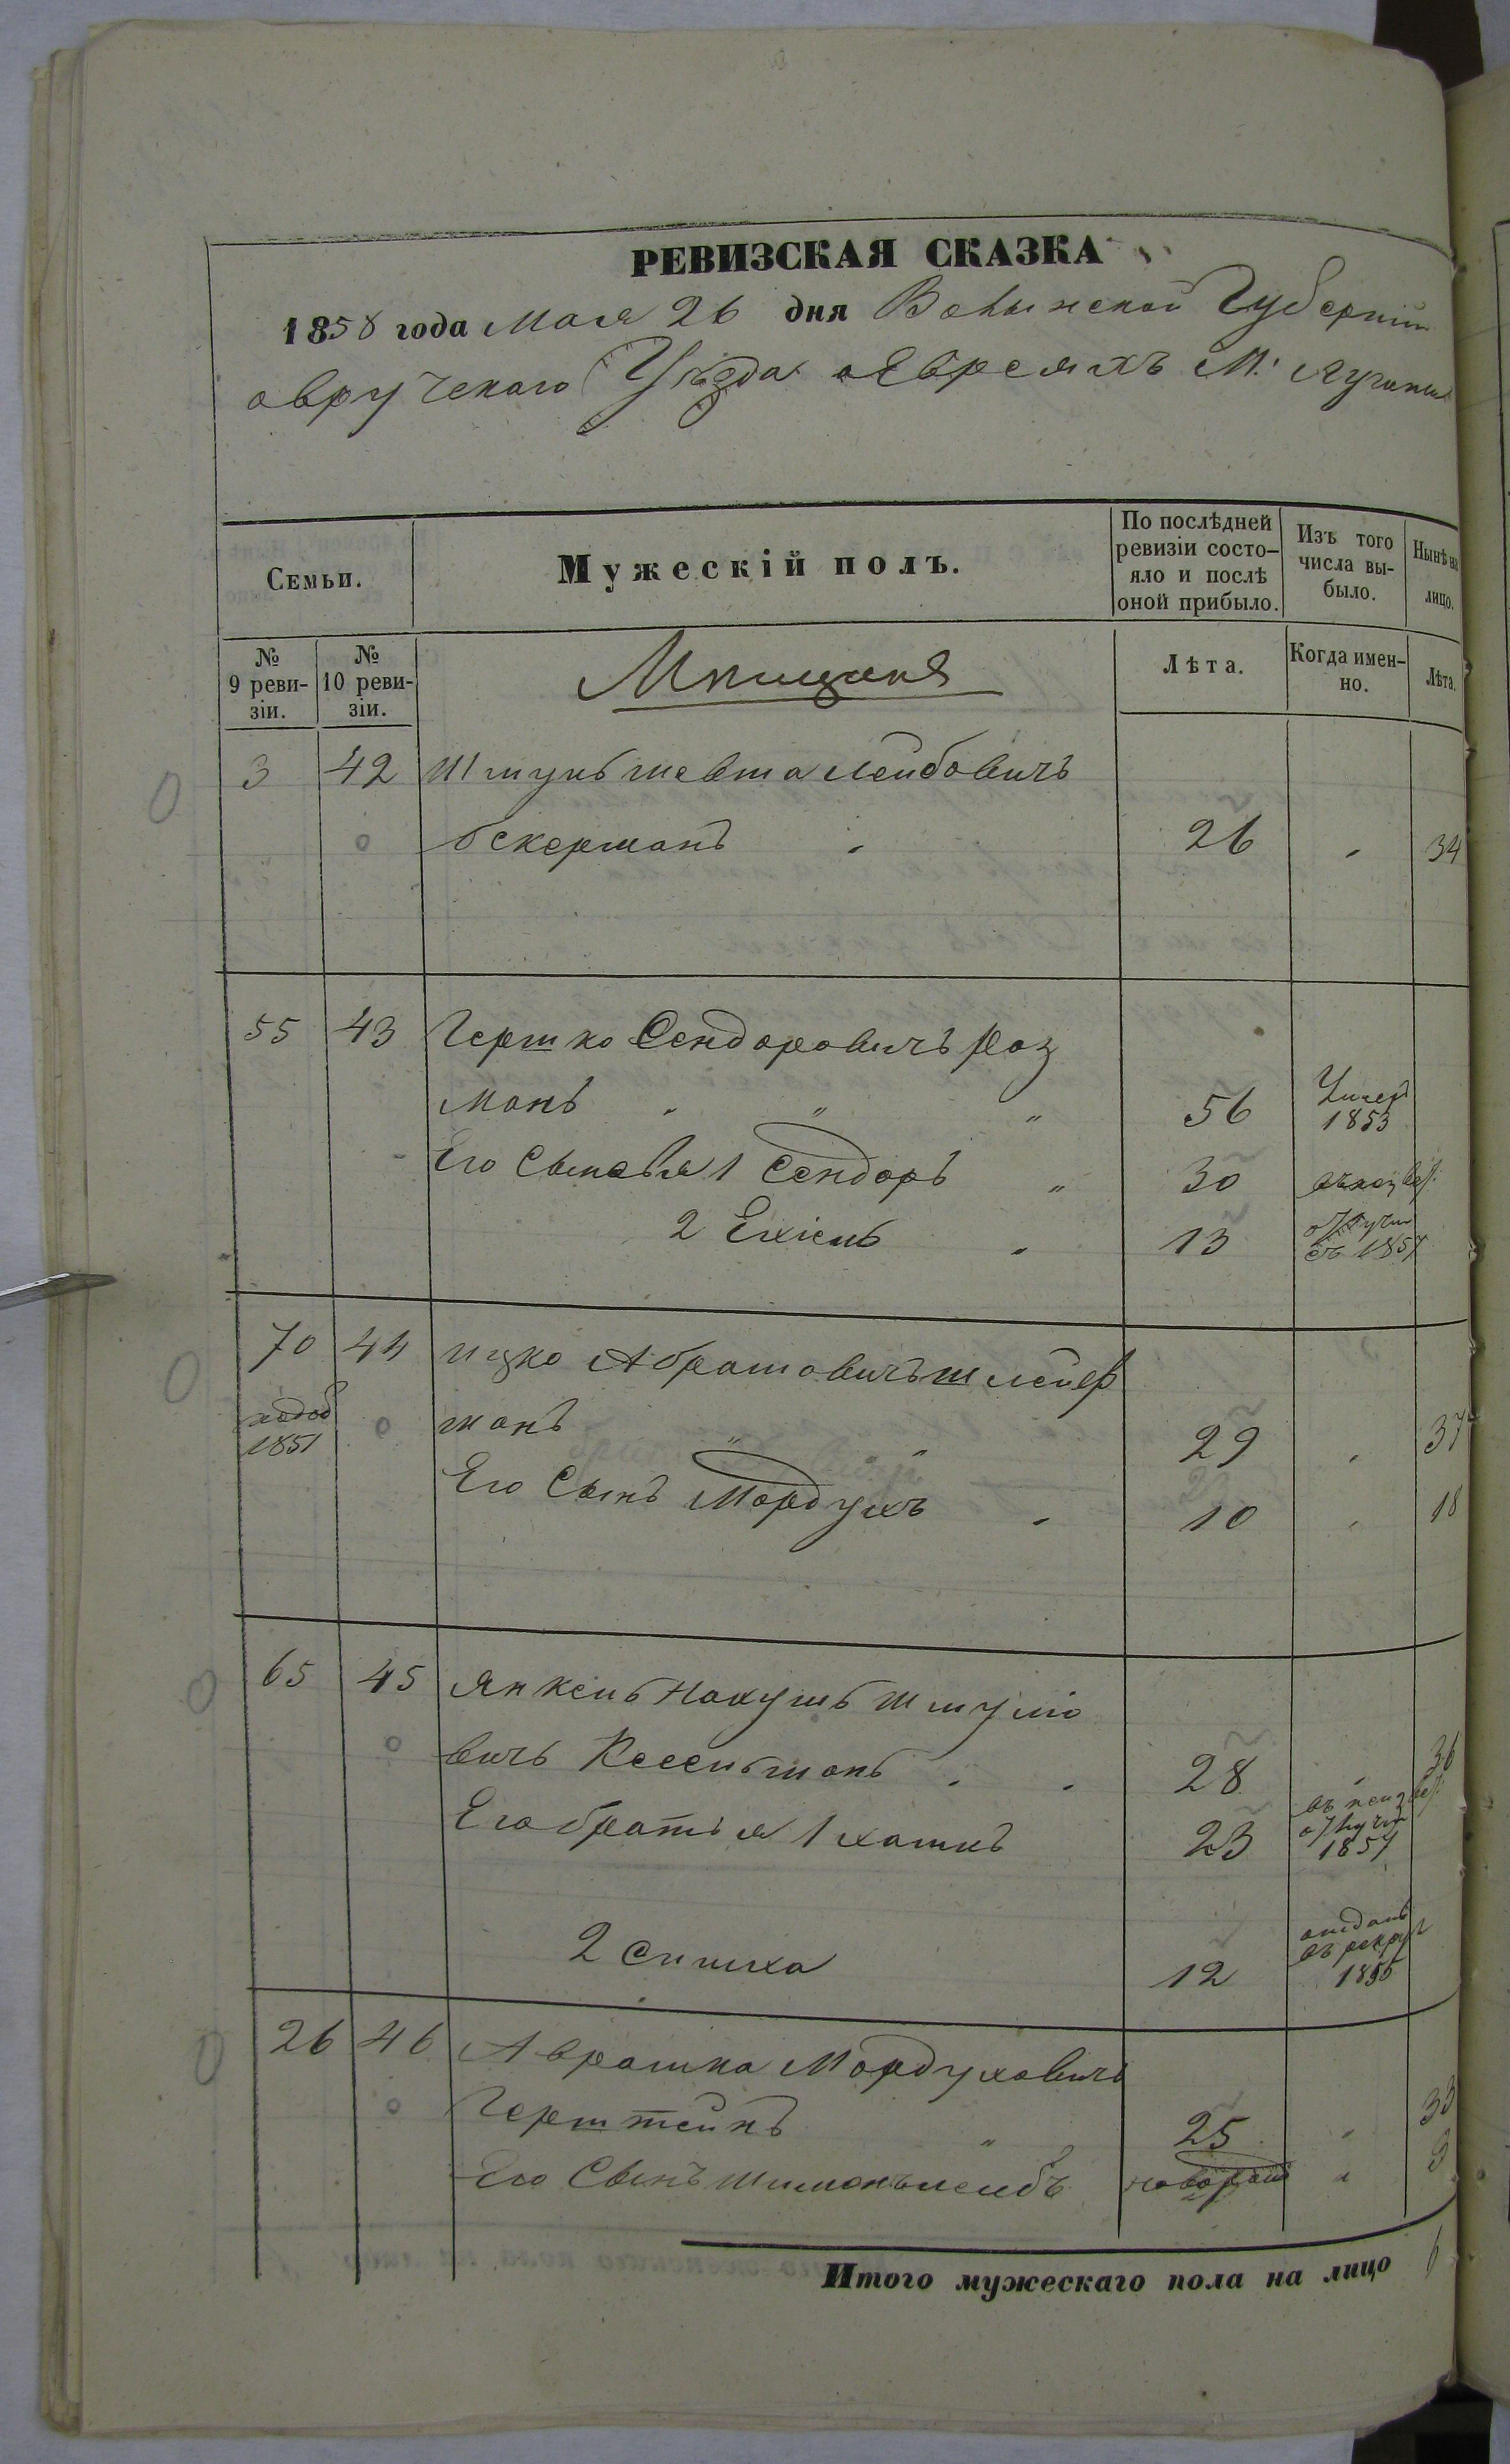 РЕВИЗСКАЯ СКАЗКА
1858 года Мая 26 дня Волынской Губерніи
овручскаго Уѣзда о Евреяхъ М. Лугины
Семьи.
Мужескій полъ.
По послѣдней ревизіи состо-
яло и послѣ
оной прибыло.
Изъ того
числа вы-
было.
Нынѣ на
лицо.
№
9 реви-
зіи.
№
10 реви-
зіи.
Мѣщане
Лѣта.
Когда имен-
но.
Лѣта.
3 42 Шмуль Лейбовичъ
26 34
55 43 Гершко Сендоровичъ Роз
манъ 56 Умеръ 1853
Его Сыновья 1 Сендоръ 30
2 Ехіель 13 1857
70 44 Ицко Абрамовичъ Шлейф
1851 манъ 29 37
Его Сынъ Мордухъ 10 18
65 45 Янкель Нахумъ Шмуліо
вичъ Кесельманъ 28 36
Его братья 1 Хаимъ 23 1857
2 Симха 12 отданъ
въ рекруты
1855
26 46 Аврамка Мордуховичъ
Герштейнъ 25 33
Его Сынъ Шимонъ Лейбъ новорож
Итого мужескаго пола на лицо 6